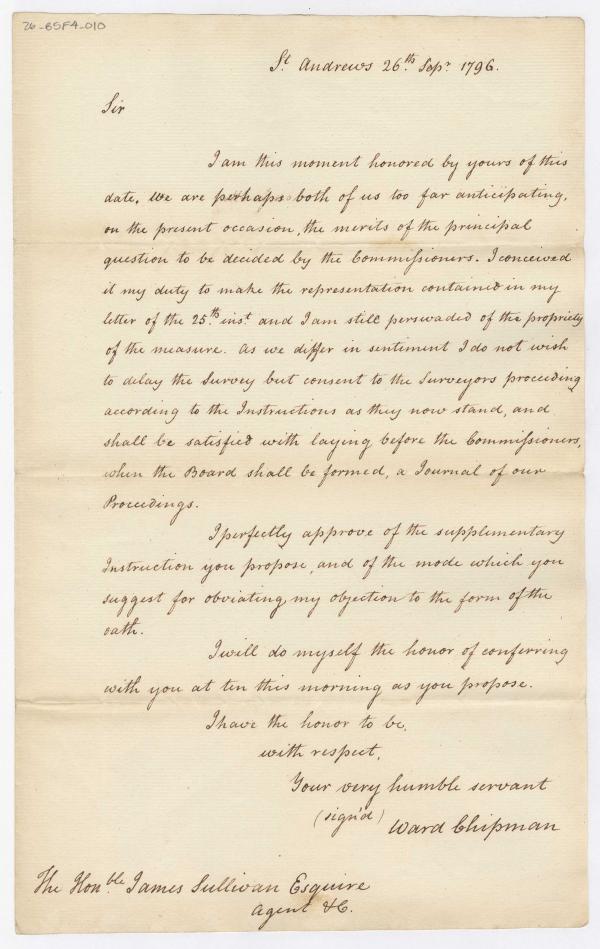 26-65F4-010
St Andrews 26th Sepr 1796.
Sir
I am this moment honored by yours of this
date. We are perhaps both of us too far anticipating,
on the present occasion, the merits of the principal
question to be decided by the Commissioners. I conceived
it my duty to make the representation contained in my
letter of the 25th inst and I am still perswaded of the propriety
of the measure. As we differ in sentiment I do not wish
to delay the Survey but consent to the Surveyors proceeding
according to the Instructions as they now stand, and
shall be satisfied with laying before the Commissioners,
when the Board shall be formed, a Journal of our
Proceedings.
I perfectly approve of the supplimentary
Instruction you propose, and of the mode which you
suggest for obviating my objection to the form of the
oath.
I will do myself the honor of conferring
with you at ten this morning as you propose.
I have the honor to be,
with respect,
Your very humble servant
(sign'd) Ward Chipman
The Honble James Sullivan Esquire
Agent &C.